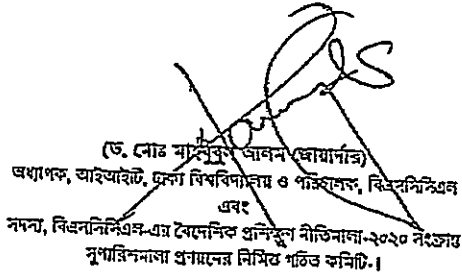 (ড. মোঃ মাহবুবুল আলম জোয়ার্দার)
অধ্যাপক, আইআইটি, ঢাকা বিশ্ববিদ্যালয় ও পরিচালক, বিএনসিসিএল
এবং
সদস্য, বিএনসিসিএল-এর বৈদেশিক প্রশিক্ষণ নীতিমালা-২০২০ সংক্রান্ত
সুপারিশমালা প্রণয়নের নিমিত্ত গঠিত কমিটি।